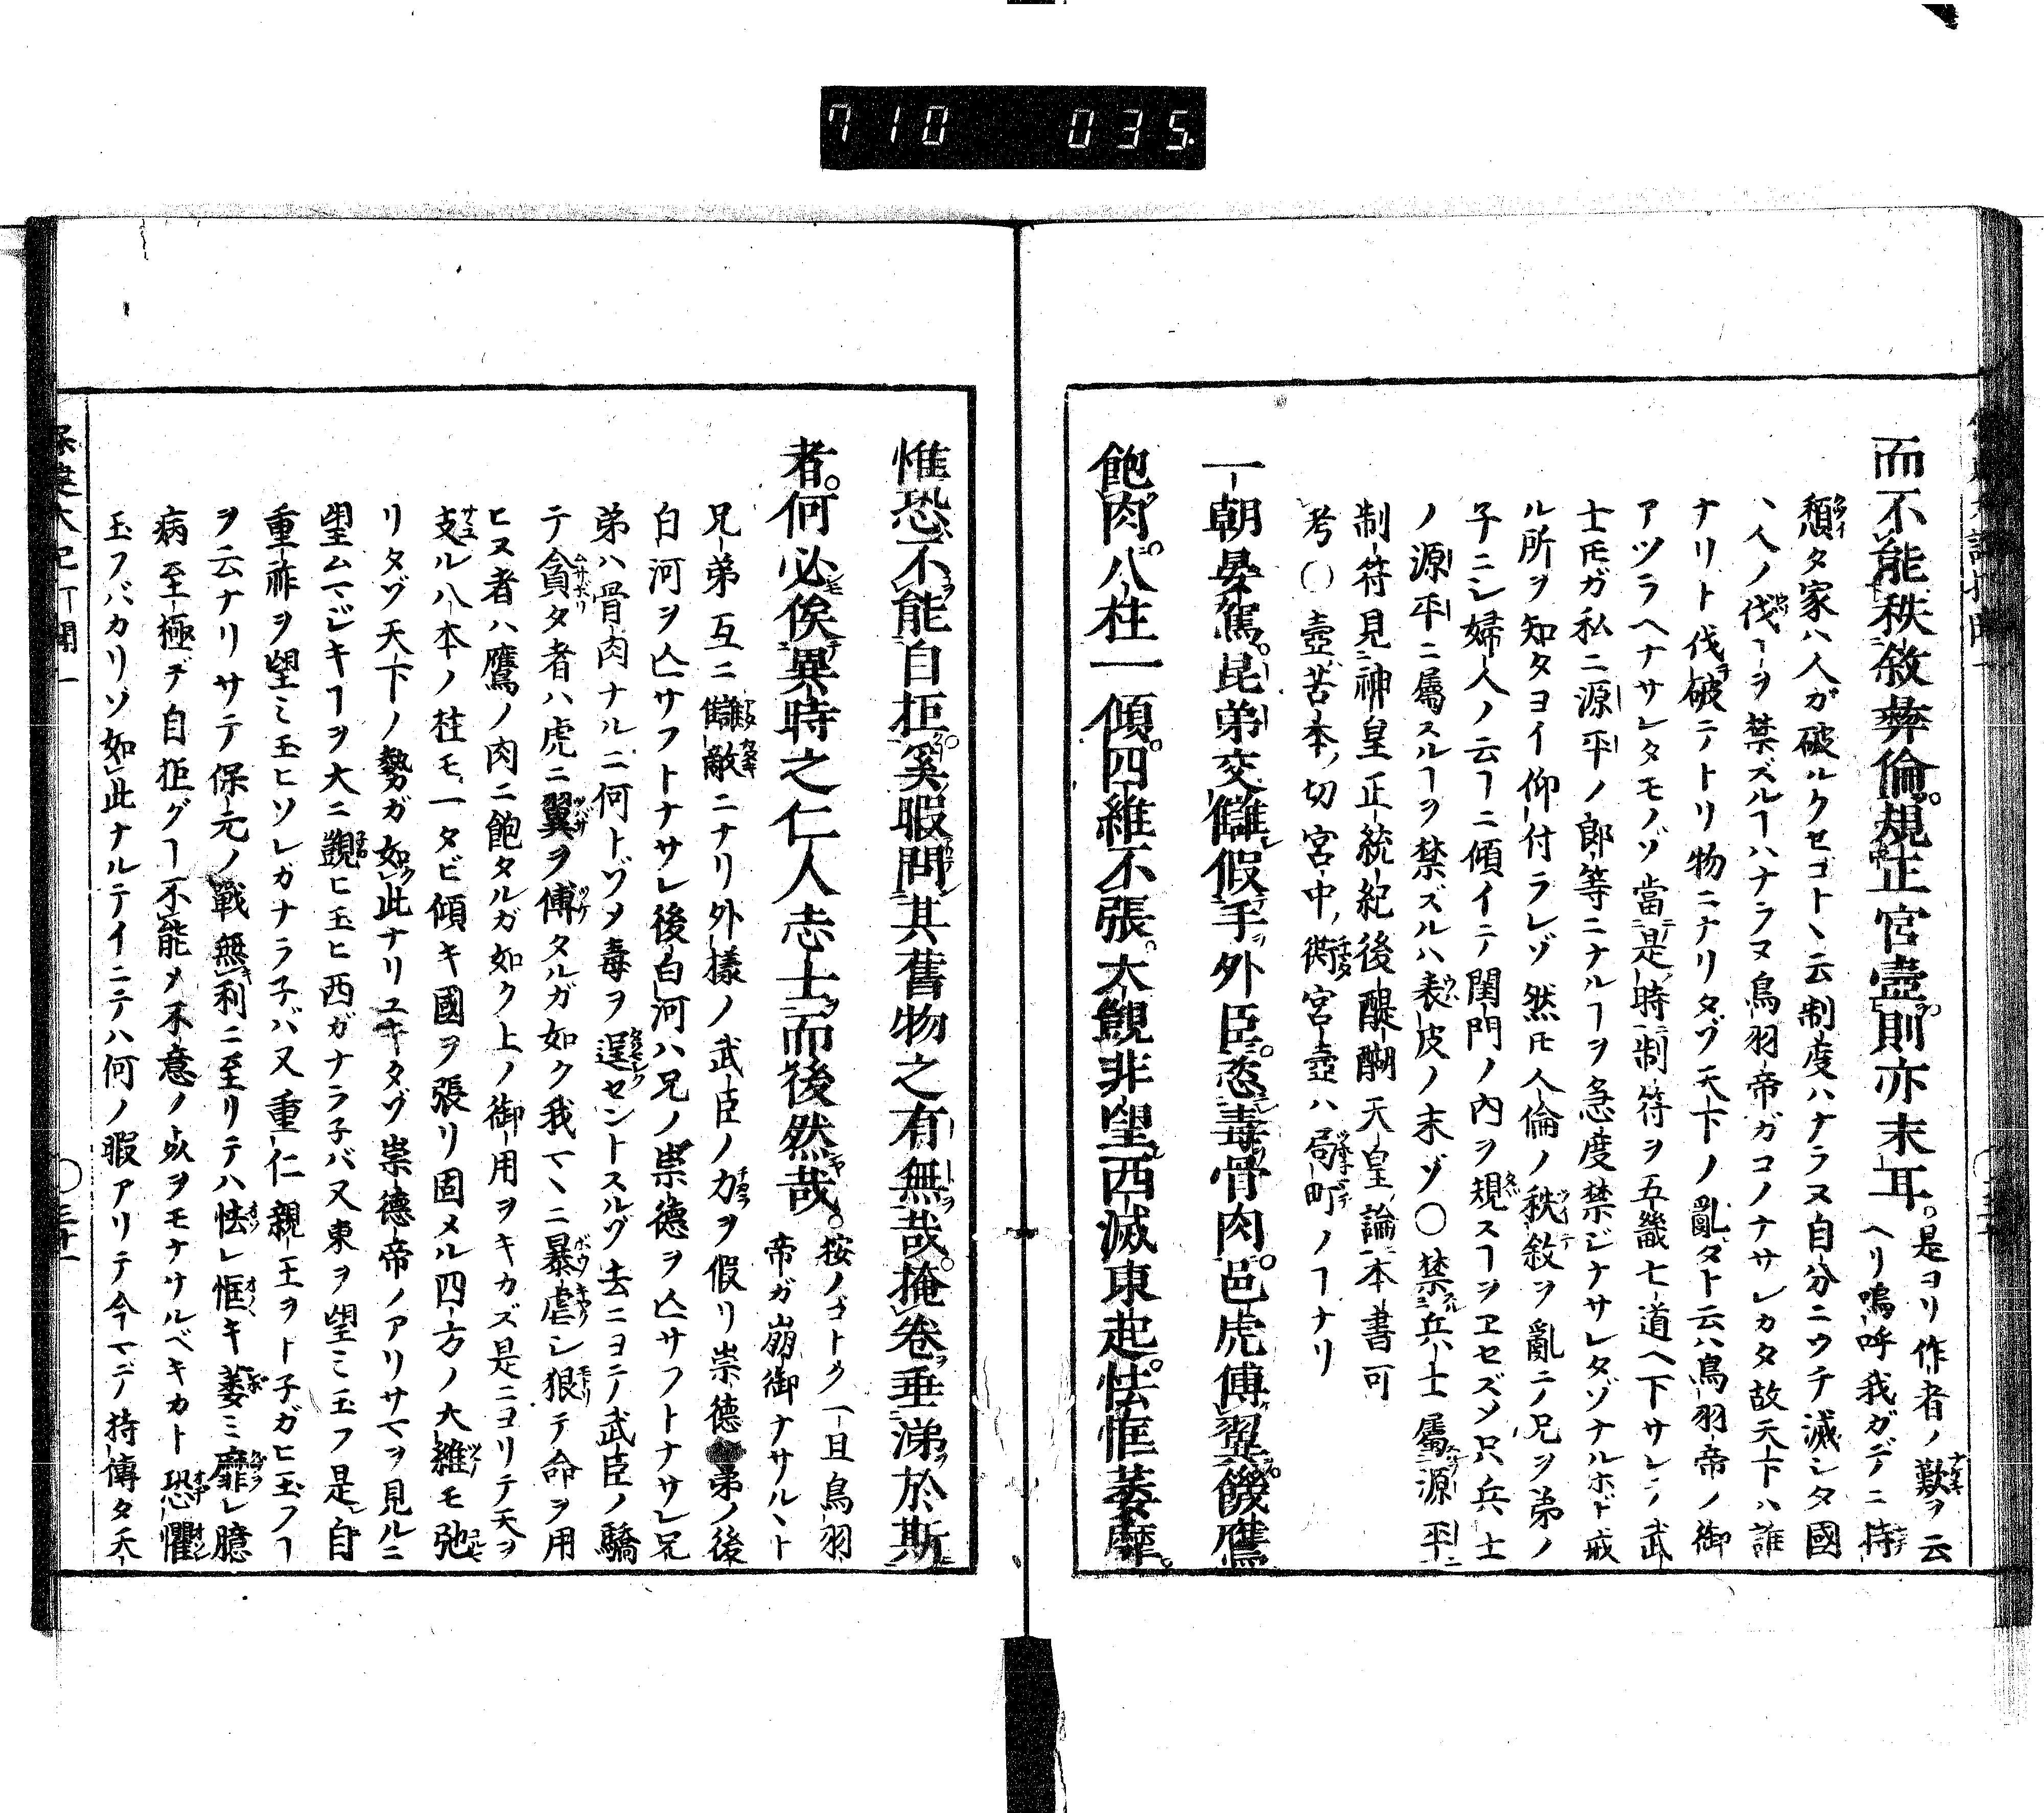 710 035
而不能秩敘彝倫。規正官壼。則亦末耳。是ヨリ作者ノ歎ヲ云
ヘリ嗚呼我ガデノニ持
頽タ家ハ人ガ破ルクセゴト丶云制度ハナラヌ自分ニウチ滅シタ國
丶人ノ伐ヿヲ禁ズルヿハナラヌ鳥羽帝ガコノナサレカタ故天下ハ誰
ナリト伐破ニノトリ物ニナリタゾ天下ノ亂タト云ハ鳥羽帝ノ御
アツラヘナサレタモノゾ當是時制符ヲ五畿七道ヘ下サレテ武
士𪜈ガ私ニ源平ノ郎等ニナルヿヲ急度禁ジナサレタゾナルホド戒
ル所ヲ知タヨイ仰付ラレゾ然𪜈人倫ノ秩敘ヲ亂テ兄ヲ弟ノ
子ニシ婦人ノ云ヿニ傾イテ閨門ノ內ヲ規スヿヲヱセズシ只兵士
ノ源平ニ屬スルヿヲ禁ズルハ表皮ノ末ゾ〇禁兵士屬源平
制符見神皇正統紀後醍醐天皇論本書可
考〇壼苦本切宮中衖宮壼ハ局町ノヿナリ
一朝晏駕。昆弟交讎。假手外臣。恣毒骨肉。邑虎傅翼。饑鷹
飽肉。八柱一傾。四維不張。大覬非望。西滅東起。怯恇萎靡。
惟恐不能自拒。奚暇問其舊物之有無哉。掩卷垂涕於斯
者。何必俟異時之仁人志士而後然哉。按ノゴトク一旦鳥羽
帝ガ崩御ナサル丶ト
兄弟互ニ讎敵ニナリ外樣ノ武臣ノ力ヲ假リ崇德弟ノ後
白河ヲ亡サフトナサレ後白河ハ兄ノ崇德ヲ亡サフトナサレ兄
弟ハ骨肉ナルニ何トゾメ毒ヲ逞セントスルゾ去ニヨテノ武臣ノ驕
テ貪タ者ハ虎ニ翼ヲ傅タルガ如ク我マ丶ニ暴虐シ狠テ命ヲ用
ヒヌ者ハ鷹ノ肉ニ飽タルガ如ク上ノ御用ヲキカズ是ニヨリテ天ヲ
支ル八本ノ柱モ一タビ傾キ國ヲ張リ固メル四方ノ大維モ弛
リタゾ天下ノ勢ガ如此ナリユキタゾ崇德帝ノアリサマヲ見ルニ
望ムマジキヿヲ大ニ覬ヒ玉ヒ西ガナラ子バ又東ヲ望ミ玉フ是自
重祚ヲ望ミ玉ヒソレガナラ子バ又重仁親王ヲト子ガヒ玉フヿ
ヲ云ナリサテ保元ノ戰無利ニ至リテハ怯レ恇キ萎ミ靡レ臆
病至極デ自拒グヿ不能メ不意ノ㕥ヲモナサルベキカト恐懼
玉フバカリゾ如此ナルテイニテハ何ノ暇アリテ今マデノ持傳タ天
〇三十一